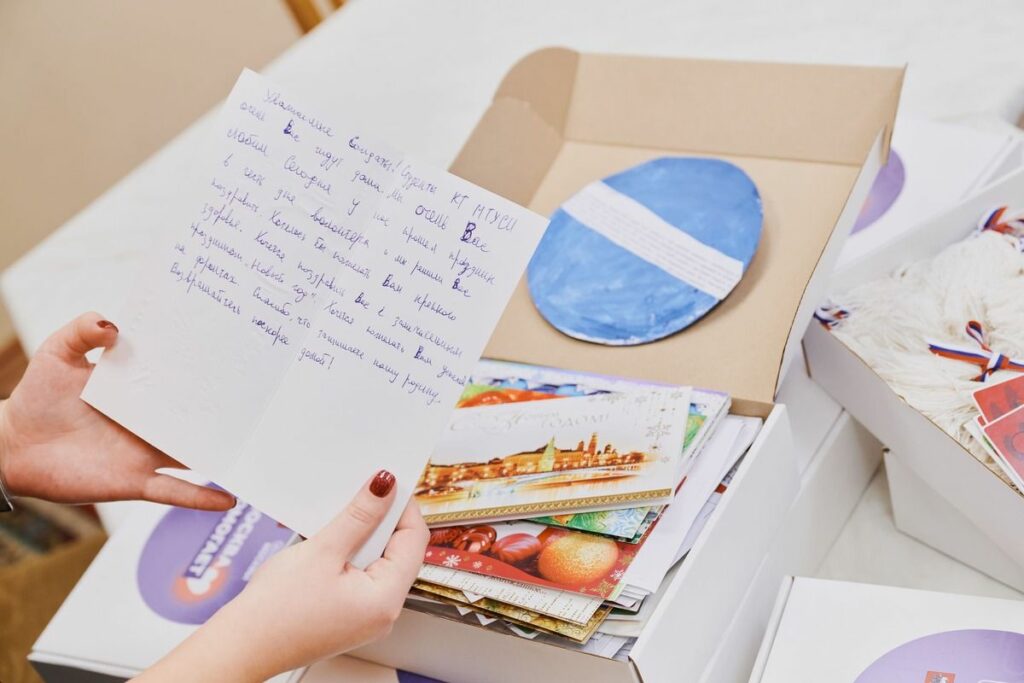 Уважаемые Солдаты! Студенты КТ МТУСИ
очень Вас ждут дома. Мы очень Вас
любим. Сегодня у нас прошел праздник
в честь дня волонтера и мы решили Вас
поздравить. Хотелось бы пожелать Вам крепкого
здоровья. Хочется поздравить Вас с замечательным
праздником „Новый год". Хочется пожелать Вам удачи
на фронтах. Спасибо, что защищаете нашу родину.
Возвращайтесь поскорее домой!
С Новым
ГОДОМ!
МОСКВА
ПОМОГАЕТ